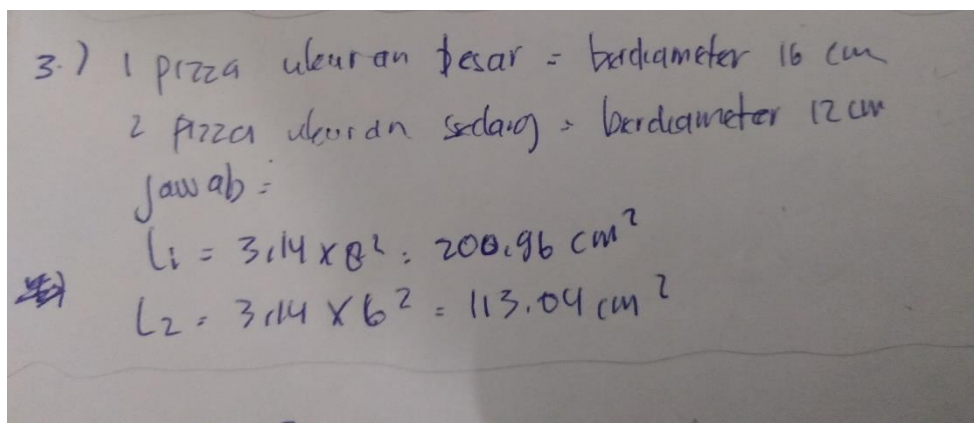 3.) 1 pizza ukuran besar = berdiameter 16 cm
2 pizza ukuran sedang = berdiameter 12 cm
Jawab =
L1 = 3,14 x 8² = 200,96 cm²
L2 = 3,14 x 6² = 113.04 cm²